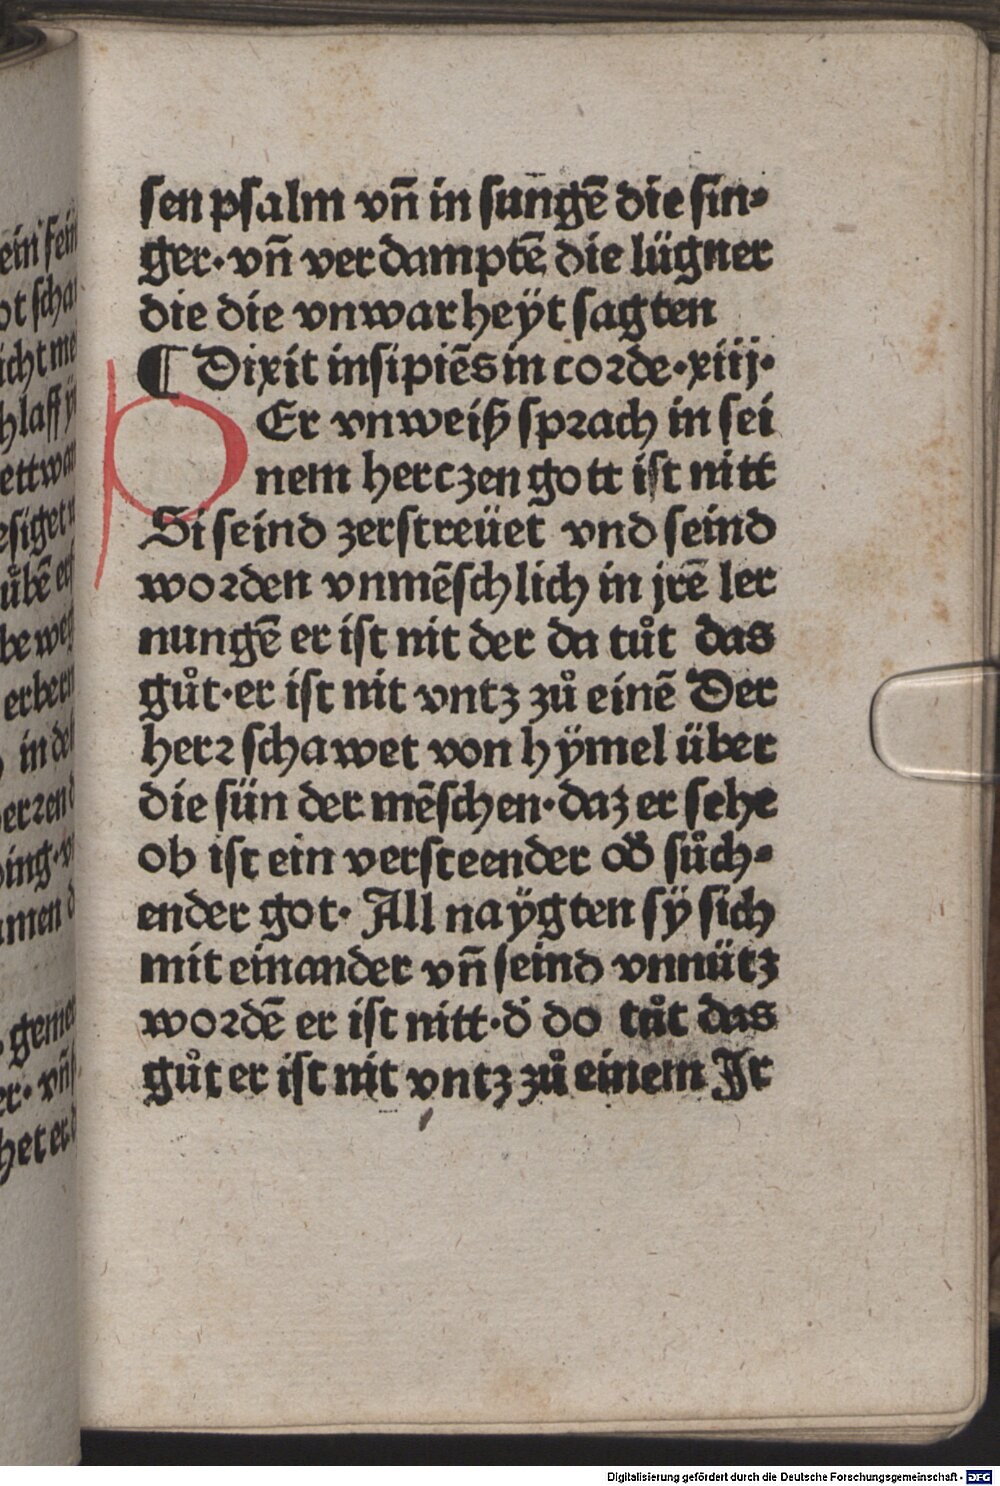 sen psalm vn̄ in sungē die sin⸗
ger·vn̄ verdamptē die lügner
die die vnwarheÿt sagten
¶ Dixit insipiēs in corde·xiij·
DEr vnweiß sprach in sei
nem herczen gott ist nitt
Si seind zerstreüet vnd seind
worden vnmēschlich in jrē ler
nungē er ist nit der da tůt das
gůt·er ist nit vntz zů einē Der
herr schawet von hÿmel über
die sün der mēschen·daz er sehe
ob ist ein versteender od̓ sůch⸗
ender got· All naÿgten sÿ sich
mit einander vn̄ seind vnnütz
wordē er ist nitt·d̓ do tůt das
gůt er ist nit vntz zů einem Ir
Digitalisierung gefördert durch die Deutsche Forschungsgemeinschaft - DFG